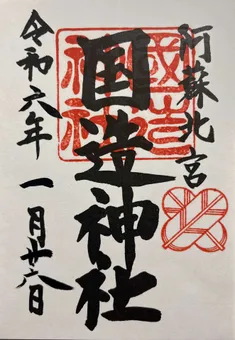 阿蘇北宮
国造神社
令和六年 一月廿六日